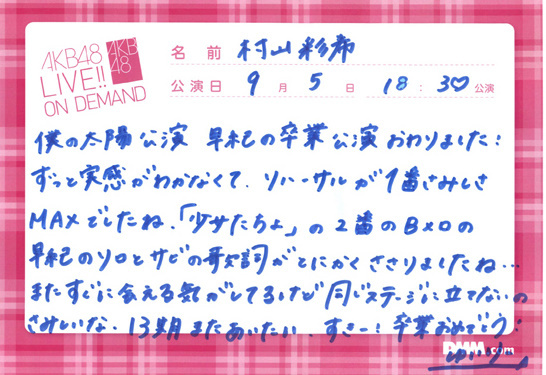 AKB48
LIVE!!
ON DEMAND
AKB
48
名前 村山彩希
公演日 9月5日 18:30公演
僕の太陽公演 早紀の卒業公演おわりました!
ずっと実感がわかなくて、リハーサルが1番さみしさ
MAXでしたね、「少女たちよ」の2番のBメロの
早紀のソロとサビの歌詞がとにかくささりましたね…
またすぐに会える気がしてるけど同じステージに立てないの
さみしいな、13期またあいたい、すきー!卒業おめでとう!
DMM.com
ゆいりー